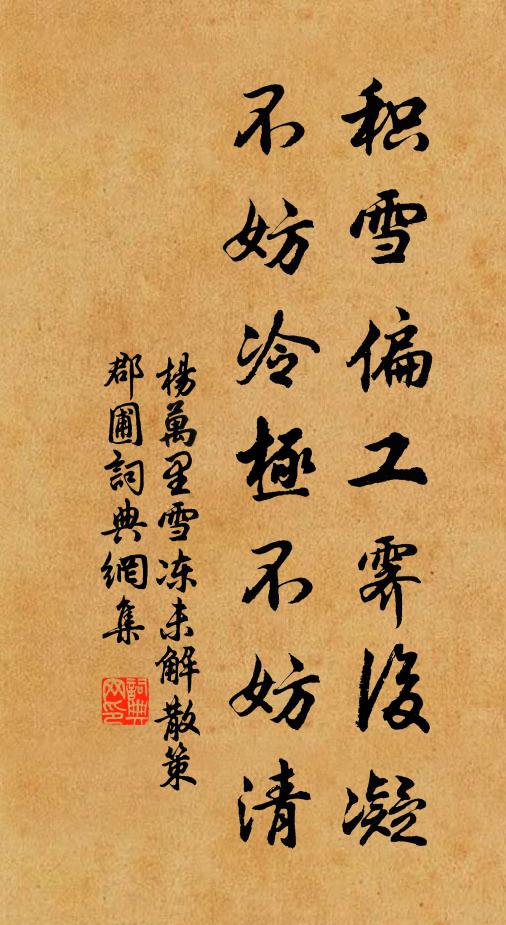 积雪偏工霁後凝
不妨冷極不妨清
楊萬里雪冻未解散策
郡圃詞典網集
詞典
网印